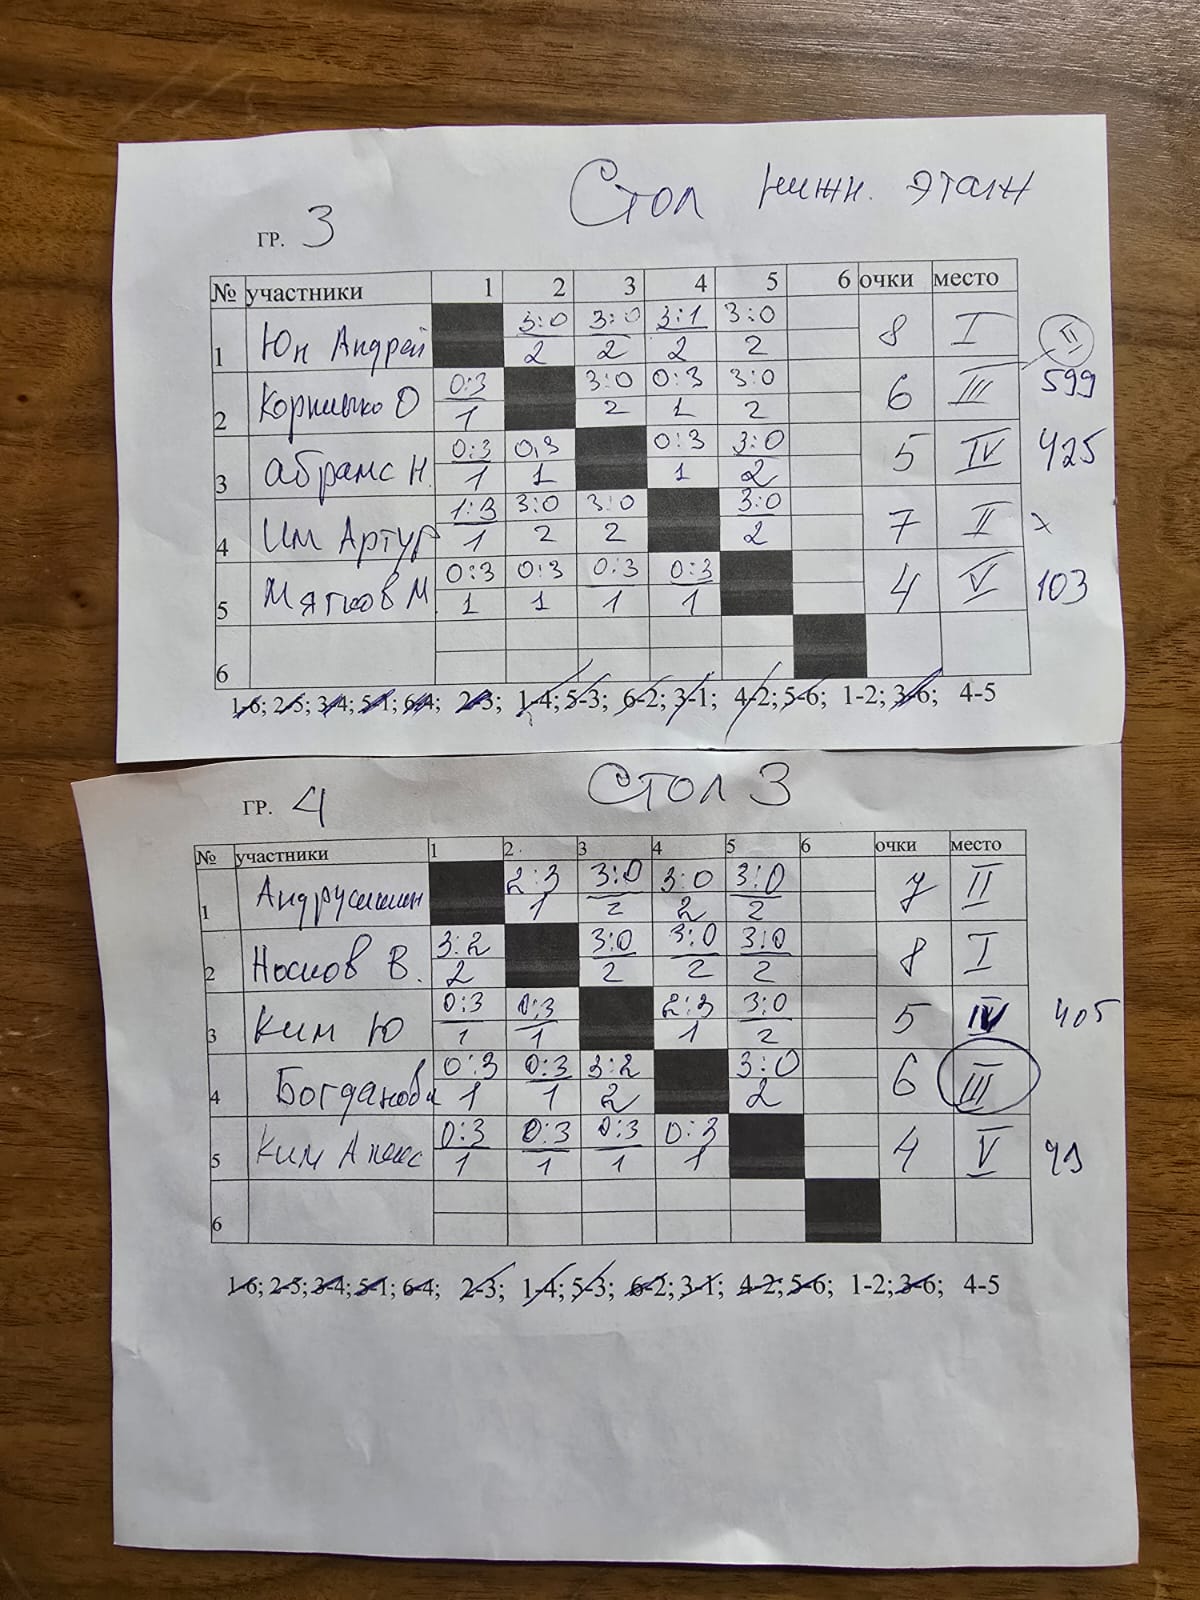 Стол нижн. этаж
гр. 3
№ участники 1 2 3 4 5 6 очки место
1 Юн Андрей 3:0 3:0 3:1 3:0 8 I
2 2 2 2
II
2 0:3 3:0 0:3 3:0 6 III 599
1 2 1 2
3 Абрамс Н. 0:3 0:3 0:3 3:0 5 IV 425
1 1 1 2
4 Им Артур 1:3 3:0 3:0 3:0 7 II x
1 2 2 2
5 Мятков М 0:3 0:3 0:3 0:3 4 V 103
1 1 1 1
6
1-6; 2-5; 3-4; 5-1; 6-4; 2-3; 1-4; 5-3; 6-2; 3-1; 4-2; 5-6; 1-2; 3-6; 4-5
Стол 3
гр. 4
№ участники 1 2 3 4 5 6 очки место
1 2:3 3:0 3:0 3:0 7 II
1 2 2 2
2 Носков В. 3:2 3:0 3:0 3:0 8 I
2 2 2 2
3 Ким Ю 0:3 0:3 2:3 3:0 5 IV 405
1 1 1 2
4 Богданова 0:3 0:3 3:2 3:0 6 III
1 1 2 2
5 Ким Алекс 0:3 0:3 0:3 0:3 4 V
1 1 1 1
6
1-6; 2-5; 3-4; 5-1; 6-4; 2-3; 1-4; 5-3; 6-2; 3-1; 4-2; 5-6; 1-2; 3-6; 4-5